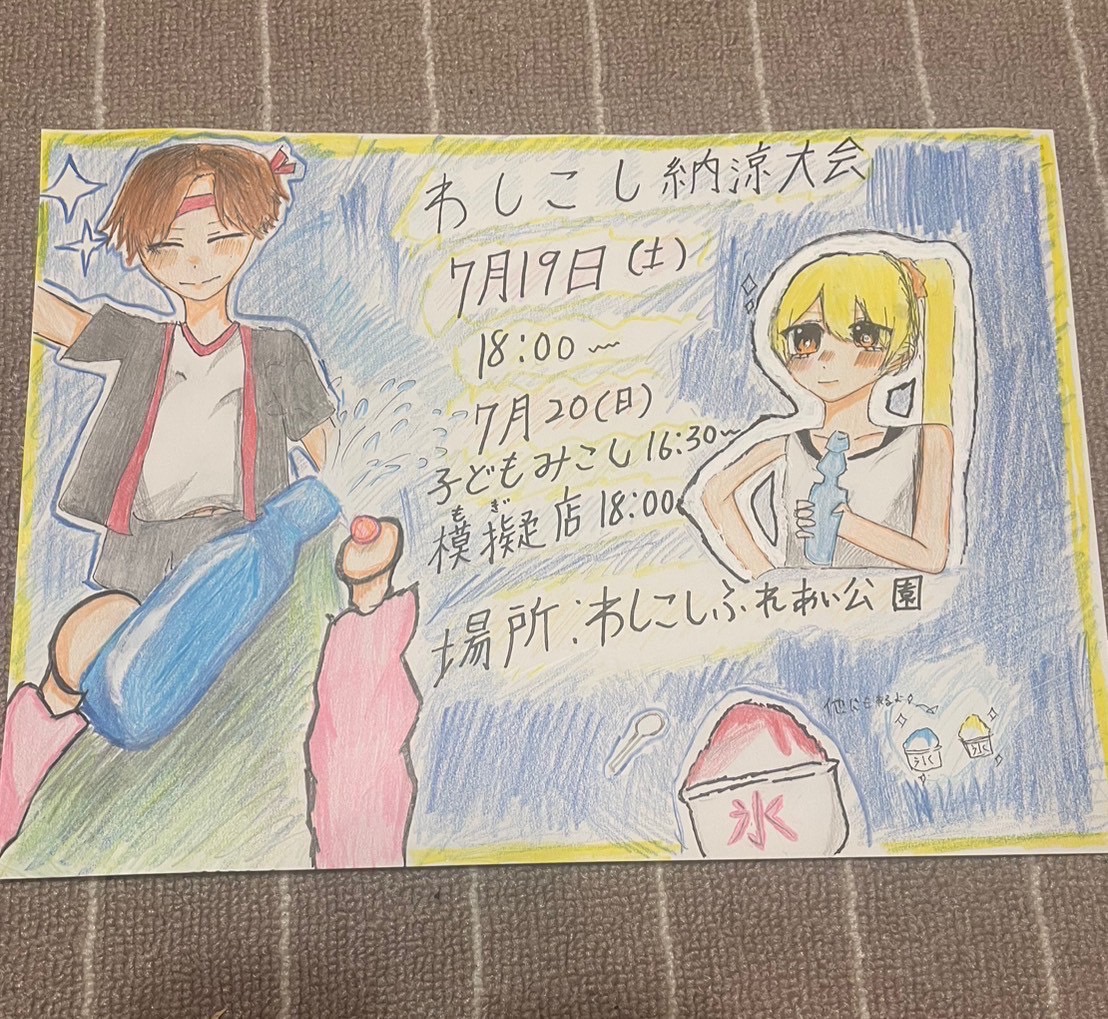 わしこし納涼大会
7月19日(土)
18:00〜
7月20(日)
子どもみこし16:30〜
もぎ
模擬店18:00
場所:わしこしふれあい公園
他にもあるよ〜
氷
氷
氷